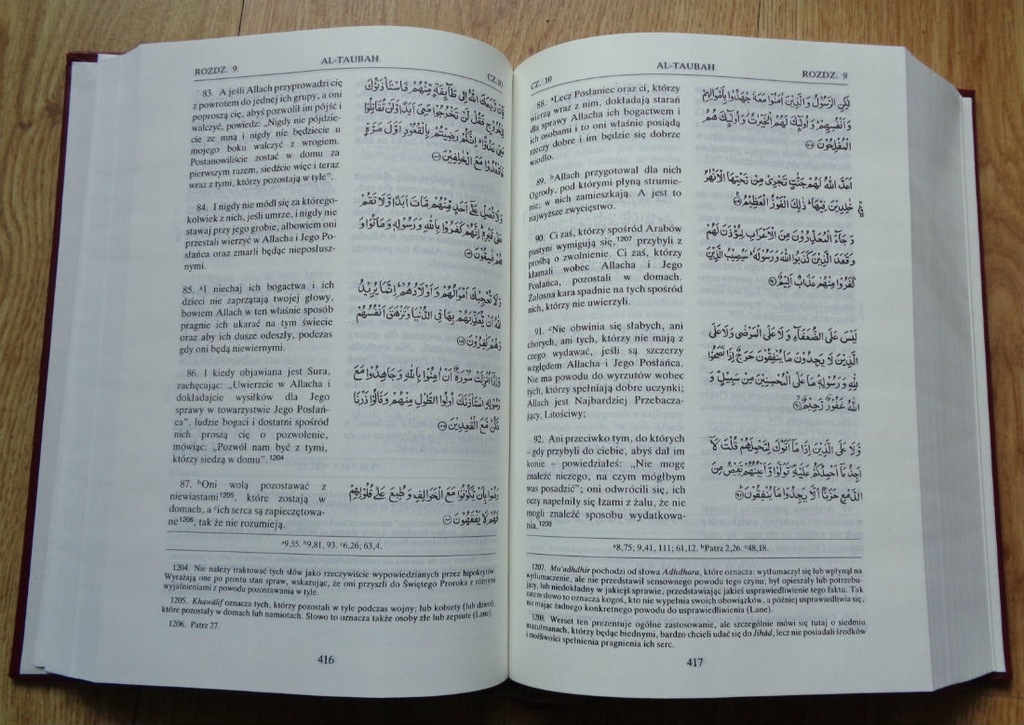 ROZDZ. 9
AL-TAUBAH
CZ.10
83. A jeśli Allach przyprowadzi cię
z powrotem do jednej ich grupy, a oni
poproszą cię, abyś pozwolił im pójść i
walczyć, powiedz: „Nigdy nie pójdzie-
cie ze mną i nigdy nie będziecie u
mojego boku walczyć z wrogiem.
Postanowiliście zostać w domu za
pierwszym razem, siedźcie więc i teraz
wraz z tymi, którzy pozostają w tyle”.
84. I nigdy nie módl się za którego-
kolwiek z nich, jeśli umrze, i nigdy nie
stawaj przy jego grobie, albowiem oni
przestali wierzyć w Allacha i Jego Po-
słańca oraz zmarli będąc nieposłusz-
nymi.
85. ªI niechaj ich bogactwa i ich
dzieci nie zaprzątają twojej głowy,
bowiem Allach w ten właśnie sposób
pragnie ich ukarać na tym świecie
oraz aby ich dusze odeszły, podczas
gdy oni będą niewiernymi.
86. I kiedy objawiana jest Sura,
zachęcając: „Uwierzcie w Allacha i
dokładajcie wysiłków dla Jego
sprawy w towarzystwie Jego Posłań-
ca”, ludzie bogaci i dostatni spośród
nich proszą cię o pozwolenie,
mówiąc: „Pozwól nam być z tymi,
którzy siedzą w domu”.1204
87. ᵇOni wolą pozostawać z
niewiastami1205, które zostają w
domach, a ᶜich serca są zapieczętowa-
ne1206, tak że nie rozumieją.
فَإِنْ رَّجَعَكَ اللّٰهُ إِلٰى طَآئِفَةٍ مِّنْهُمْ فَاسْتَأْذَنُوْكَ
لِلْخُرُوْجِ فَقُلْ لَّنْ تَخْرُجُوْا مَعِيَ أَبَدًا وَّلَنْ تُقَاتِلُوْا
مَعِيَ عَدُوًّا ؕ إِنَّكُمْ رَضِيْتُمْ بِالْقُعُوْدِ أَوَّلَ مَرَّةٍ
فَاقْعُدُوْا مَعَ الْخٰلِفِيْنَ
وَلَا تُصَلِّ عَلٰٓى أَحَدٍ مِّنْهُمْ مَّاتَ أَبَدًا وَّلَا تَقُمْ
عَلٰى قَبْرِهٖ ؕ إِنَّهُمْ كَفَرُوْا بِاللّٰهِ وَرَسُوْلِهٖ وَمَاتُوْا وَ
هُمْ فٰسِقُوْنَ
وَلَا تُعْجِبْكَ أَمْوَالُهُمْ وَأَوْلَادُهُمْ ؕ إِنَّمَا يُرِيْدُ
اللّٰهُ أَنْ يُّعَذِّبَهُمْ بِهَا فِى الدُّنْيَا وَتَزْهَقَ أَنْفُسُهُمْ
وَهُمْ كٰفِرُوْنَ
وَإِذَآ أُنْزِلَتْ سُوْرَةٌ أَنْ اٰمِنُوْا بِاللّٰهِ وَجَاهِدُوْا مَعَ
رَسُوْلِهِ اسْتَأْذَنَكَ أُولُوا الطَّوْلِ مِنْهُمْ وَقَالُوْا ذَرْنَا
نَكُنْ مَّعَ الْقٰعِدِيْنَ
رَضُوْا بِأَنْ يَّكُوْنُوْا مَعَ الْخَوَالِفِ وَطُبِعَ عَلٰى قُلُوْبِهِمْ
فَهُمْ لَا يَفْقَهُوْنَ
ª9,55. ᵇ9,81, 93. ᶜ6,26; 63,4.
1204. Nie należy traktować tych słów jako rzeczywiście wypowiedzianych przez hipokrytów.
Wyrażają one po prostu stan spraw, wskazując, że oni przyszli do Świętego Proroka z różnymi
wyjaśnieniami z powodu pozostawania w tyle.
1205. Khawâlif oznacza tych, którzy pozostali w tyle podczas wojny; lub kobiety (lub dzieci),
które pozostały w domach lub namiotach. Słowo to oznacza także osoby złe lub zepsute (Lane).
1206. Patrz 27.
416
CZ. 10
AL-TAUBAH
ROZDZ. 9
88. ªLecz Posłaniec oraz ci, którzy
wierzą wraz z nim, dokładają starań
dla sprawy Allacha ich bogactwem i
ich osobami i to oni właśnie posiądą
rzeczy dobre i im będzie się dobrze
wiodło.
89. ᵇAllach przygotował dla nich
Ogrody, pod którymi płyną strumie-
nie; w nich zamieszkają. A jest to
najwyższe zwycięstwo.
90. Ci zaś, którzy spośród Arabów
pustyni wymigują się,1207 przybyli z
prośbą o zwolnienie. Ci zaś, którzy
kłamali wobec Allacha i Jego
Posłańca, pozostali w domach.
Żałosna kara spadnie na tych spośród
nich, którzy nie uwierzyli.
91. ᶜNie obwinia się słabych, ani
chorych, ani tych, którzy nie mają z
czego wydawać, jeśli są szczerzy
względem Allacha i Jego Posłańca.
Nie ma powodu do wyrzutów wobec
tych, którzy spełniają dobre uczynki;
Allach jest Najbardziej Przebacza-
jący, Litościwy;
92. Ani przeciwko tym, do których
- gdy przybyli do ciebie, abyś dał im
konie – powiedziałeś: „Nie mogę
znaleźć niczego, na czym mógłbym
was posadzić”; oni odwrócili się, ich
oczy napełniły się łzami z żalu, że nie
mogli znaleźć sposobu wydatkowa-
nia.1208
لٰكِنِ الرَّسُوْلُ وَالَّذِيْنَ اٰمَنُوْا مَعَهٗ جٰهَدُوْا بِأَمْوَالِهِمْ
وَأَنْفُسِهِمْ ؕ وَأُولٰٓئِكَ لَهُمُ الْخَيْرٰتُ ؗ وَأُولٰٓئِكَ هُمُ
الْمُفْلِحُوْنَ
أَعَدَّ اللّٰهُ لَهُمْ جَنّٰتٍ تَجْرِيْ مِنْ تَحْتِهَا الْأَنْهٰرُ
خٰلِدِيْنَ فِيْهَا ؕ ذٰلِكَ الْفَوْزُ الْعَظِيْمُ
وَجَآءَ الْمُعَذِّرُوْنَ مِنَ الْأَعْرَابِ لِيُؤْذَنَ لَهُمْ
وَقَعَدَ الَّذِيْنَ كَذَبُوا اللّٰهَ وَرَسُوْلَهٗ ؕ سَيُصِيْبُ الَّذِيْنَ
كَفَرُوْا مِنْهُمْ عَذَابٌ أَلِيْمٌ
لَيْسَ عَلَى الضُّعَفَآءِ وَلَا عَلَى الْمَرْضٰى وَلَا عَلَى
الَّذِيْنَ لَا يَجِدُوْنَ مَا يُنْفِقُوْنَ حَرَجٌ إِذَا نَصَحُوْا
لِلّٰهِ وَرَسُوْلِهٖ ؕ مَا عَلَى الْمُحْسِنِيْنَ مِنْ سَبِيْلٍ ؕ وَ
اللّٰهُ غَفُوْرٌ رَّحِيْمٌ
وَّلَا عَلَى الَّذِيْنَ إِذَا مَآ أَتَوْكَ لِتَحْمِلَهُمْ قُلْتَ لَآ
أَجِدُ مَآ أَحْمِلُكُمْ عَلَيْهِ ۪ تَوَلَّوْا وَّأَعْيُنُهُمْ تَفِيْضُ مِنَ
الدَّمْعِ حَزَنًا أَلَّا يَجِدُوْا مَا يُنْفِقُوْنَ
ª8,75, 9,41, 111; 61,12. ᵇPatrz 2,26. ᶜ48,18.
1207. Mu'adhdhir pochodzi od słowa Adhdhara, które oznacza: wytłumaczył się lub wpłynął na
wytłumaczenie, ale nie przedstawił sensownego powodu tego czynu; był opieszały lub potrzebu-
jący, lub niedokładny w jakiejś sprawie, przedstawiając jakieś usprawiedliwienie tego faktu. Tak
zatem słowo to oznacza kogoś, kto nie wypełnia swoich obowiązków, a później usprawiedliwia się,
nie mając żadnego konkretnego powodu do usprawiedliwienia (Lane).
1208. Werset ten prezentuje ogólne zastosowanie, ale szczególnie mówi się tutaj o siedmiu
muzułmanach, którzy będąc biednymi, bardzo chcieli udać się do Jihâd, lecz nie posiadali środków
i możliwości spełnienia pragnienia ich serc.
417